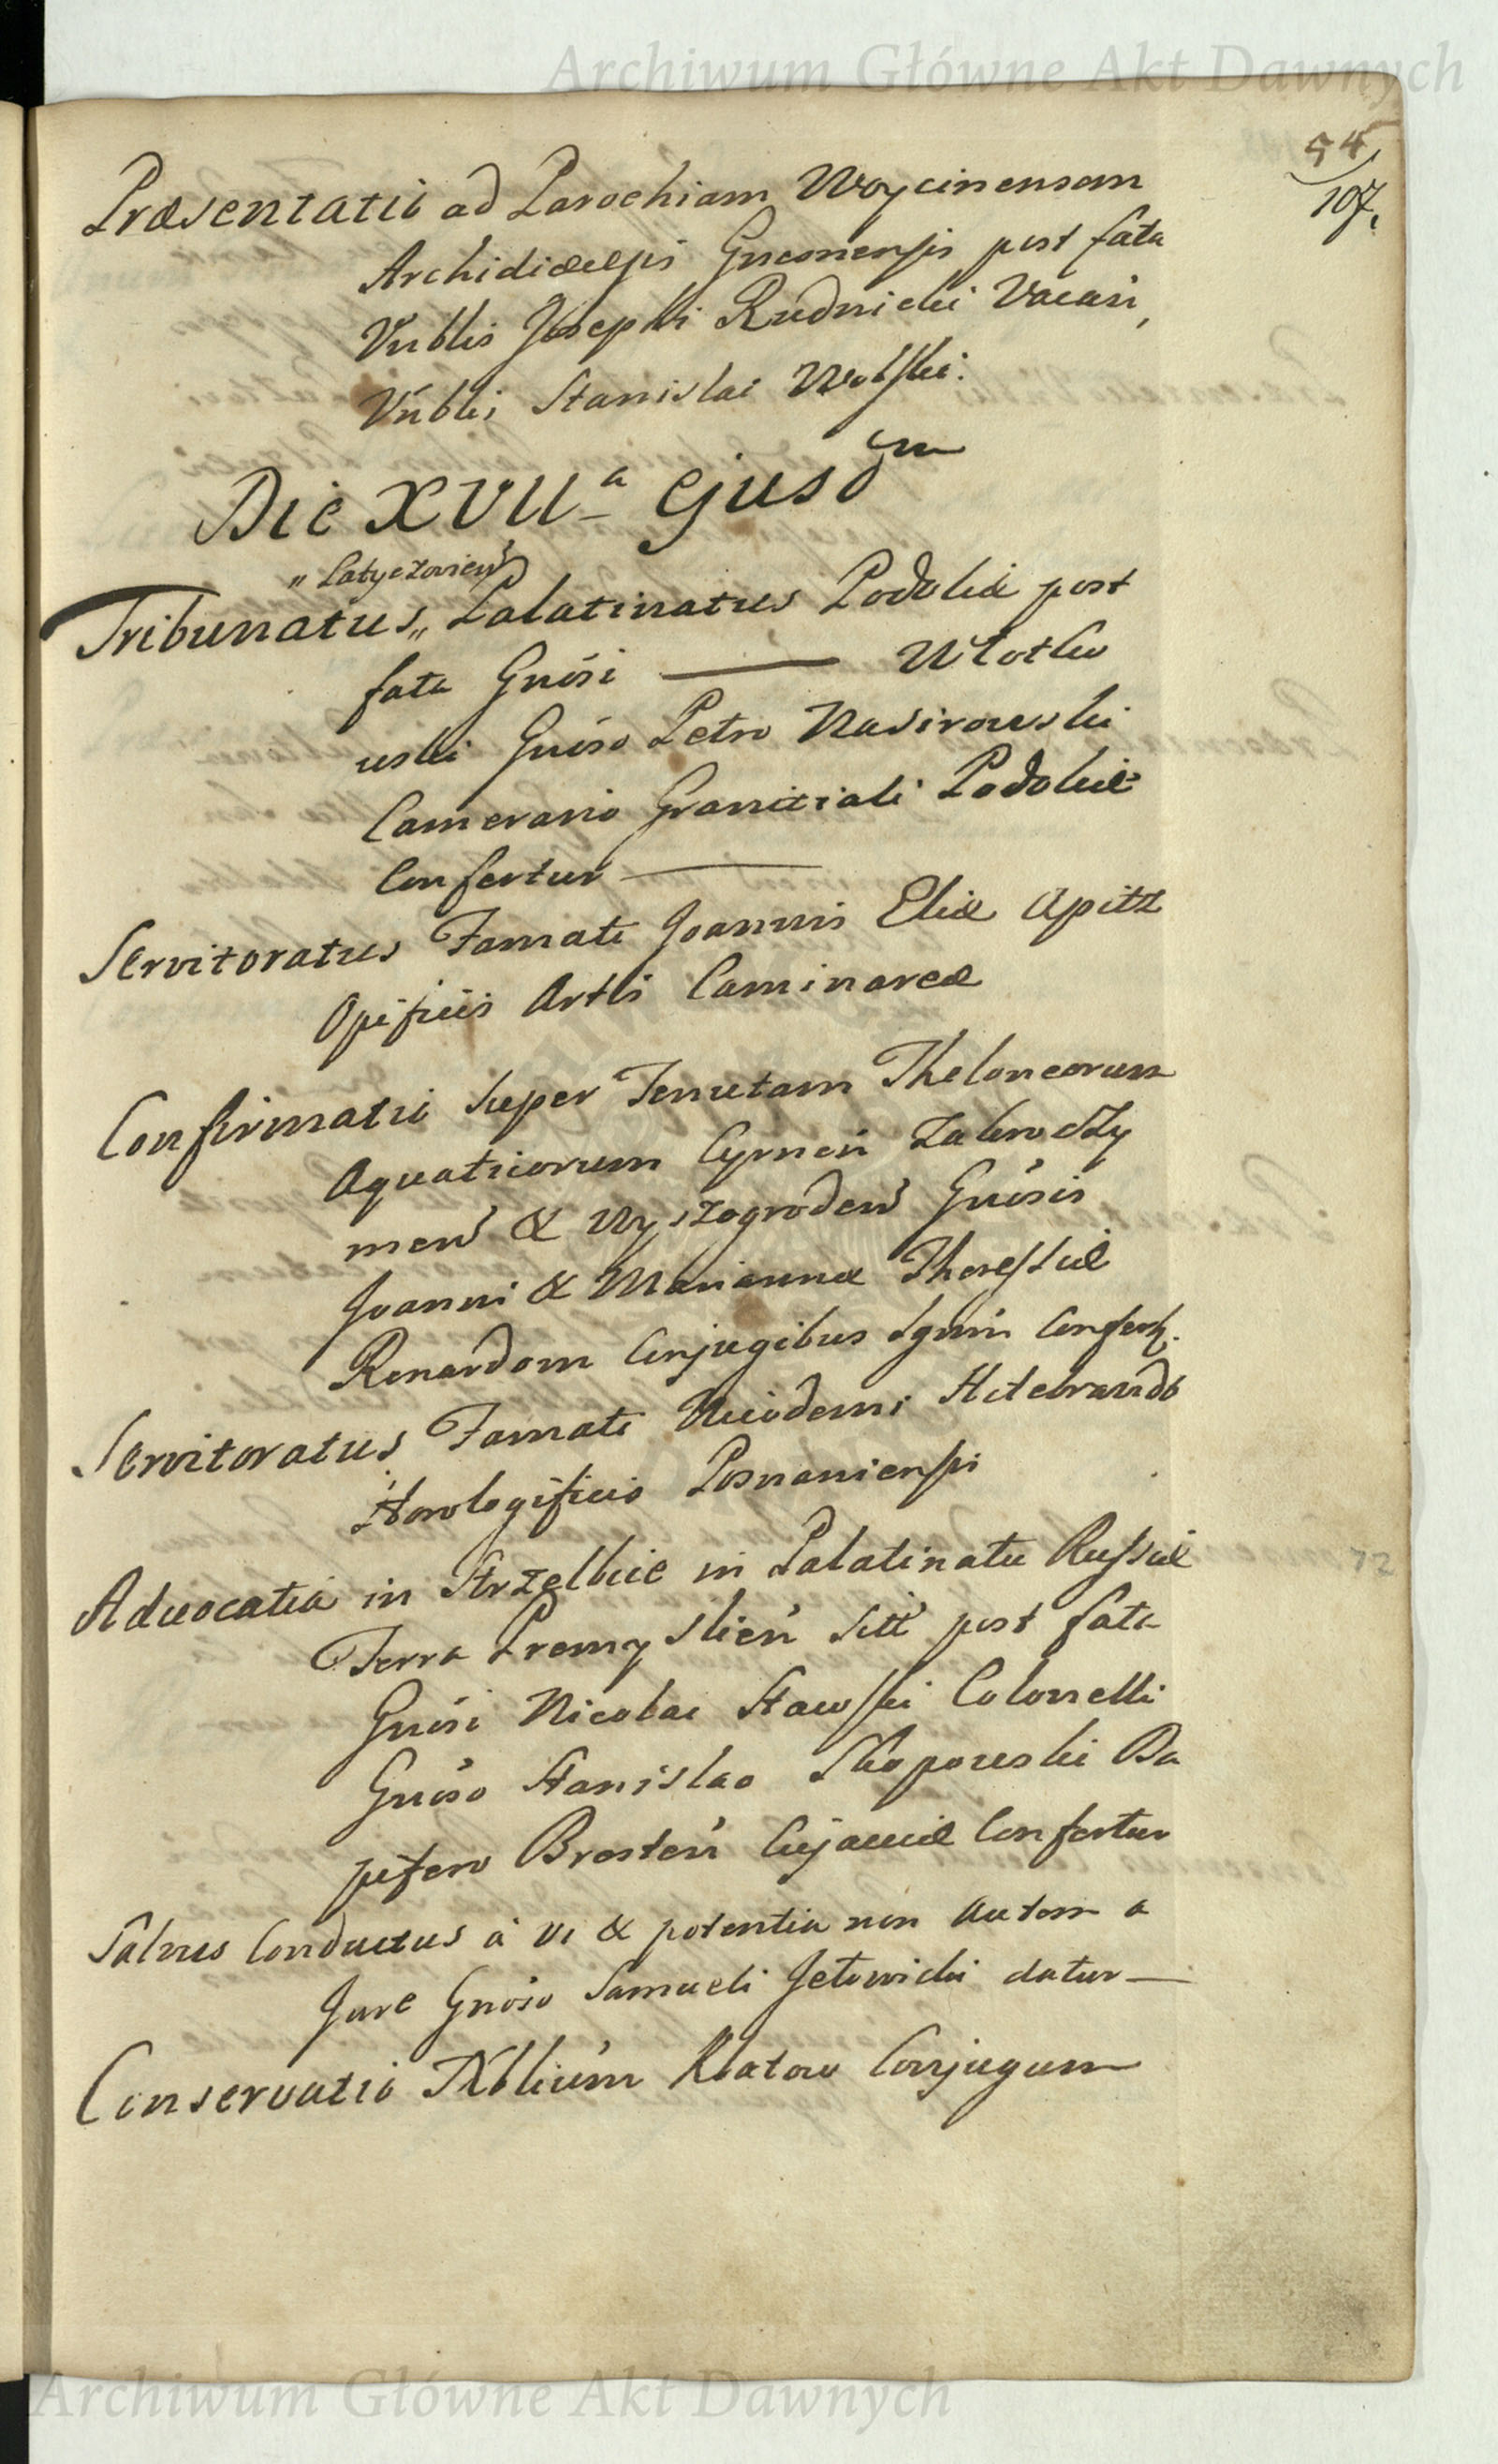 Archiwum Główne Akt Dawnych
54
107.
Præsentatio ad Parochiam Woycinensem
Archidiæcesis Gnesnensis post fata
Vnblis Josephi Rudnicki Vacań,
Vnblis Stanislai Wolski.
Die XVIIa ejusdm
„ Latyczovień
Tribunatus „ Palatinatus Podoliæ post
fata Gnősi ——— Włotko
wski Gnőso Petro Nasirowski
Camerario Granitiali Podoliæ
Confertur ———
Servitoratus Famati Joannis Eliæ Apitz
Opificis Artis Caminareæ
Confirmatio super Tenutam Theloneorum
Aquaticorum Cymeń Zakroczy
meń & Wyszogrodeń Gnősis
Joanni & Mariannæ Theressiæ
Renardom Conjugibus
Servitoratus Famati Nicodemi Hitebrandt
Horologificis Posnaniensi
Advocatia in Strzelbice in Palatinatu Russiæ
Terra Premyslień Sitt post fata
Gnősi Nicolai Stawski Colonelli
Gnőso Stanislao Skopowski Da
pifero Bresteń Cujaviæ Confertur
Salvus Conductus à vi & potentia non autem a
Jure Gnőso Samueli Jełowicki datur —
Conservatio Nblium Conjugum
Archiwum Główne Akt Dawnych